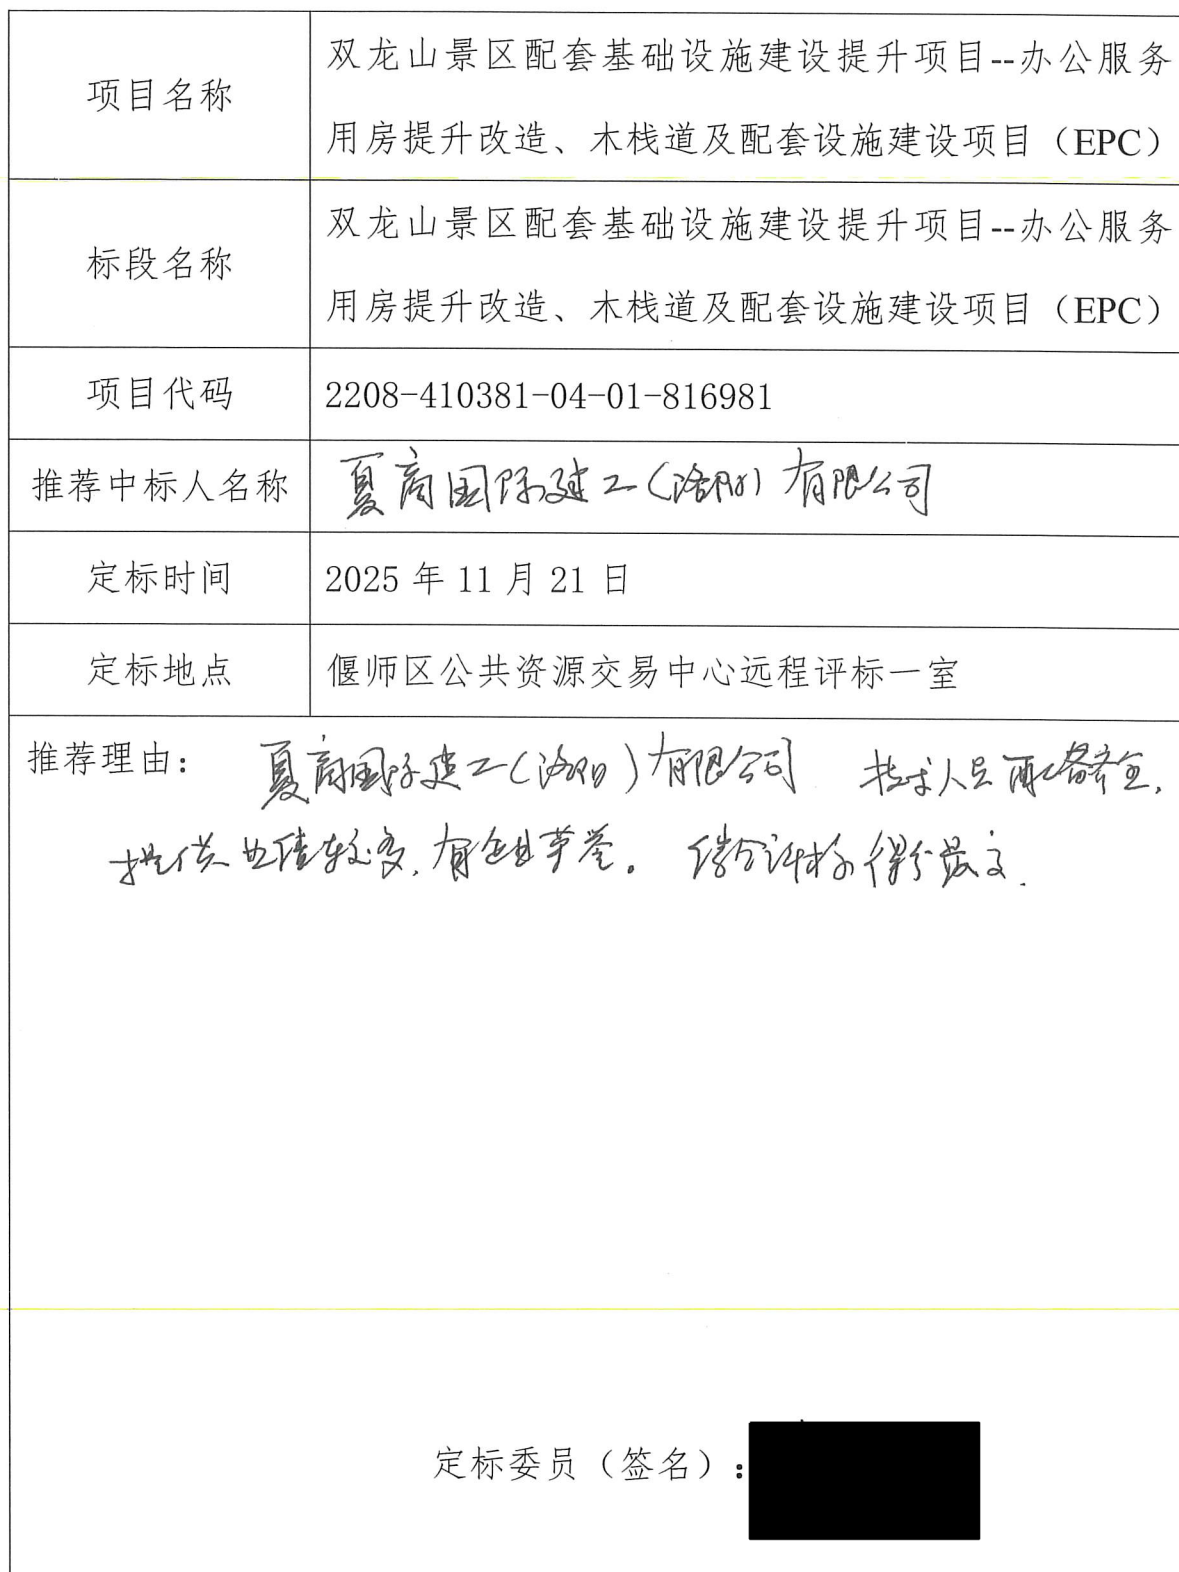 项目名称
双龙山景区配套基础设施建设提升项目--办公服务
用房提升改造、木栈道及配套设施建设项目（EPC）
标段名称
双龙山景区配套基础设施建设提升项目--办公服务
用房提升改造、木栈道及配套设施建设项目（EPC）
项目代码
2208-410381-04-01-816981
推荐中标人名称
夏商国际建工（洛阳）有限公司
定标时间
2025 年 11 月 21 日
定标地点
偃师区公共资源交易中心远程评标一室
推荐理由： 夏商国际建工（洛阳）有限公司 技术人员配备齐全，
提供业绩较多，有企业荣誉。 综合评标得分最高.
定标委员（签名）：